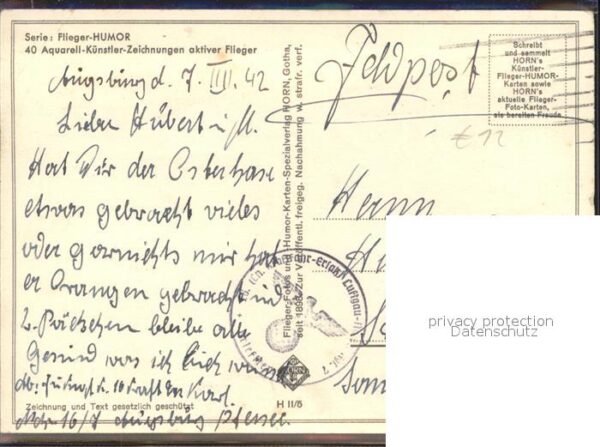 Serie: Flieger-HUMOR
40 Aquarell-Künstler-Zeichnungen aktiver Flieger
Augsburg d. 7. IIII. 42
Lieber Hubert u. M.
Hat Dir der Osterhase
etwas gebracht vieles
oder garnichts mir hat
er Orangen gebracht und
2. Päckchen bleibe alle
Gesund was ich Euch wünsche
Karl.
16/7 Augsburg Pfersee.
Zeichnung und Text gesetzlich geschützt
H 11/5
Flieger-Fotos und Humor-Karten-Spezialverlag HORN, Gotha,
seit 1898. Zur Veröffentl. freigeg. Nachahmung w. strafr. verf.
HORN
Feldpost
Schreibt
und sammelt
HORN's
Künstler-
Flieger-HUMOR-
Karten sowie
HORN's
aktuelle Flieger-
Foto-Karten,
sie bereiten Freude.
€ 12
Herrn
privacy protection
Datenschutz